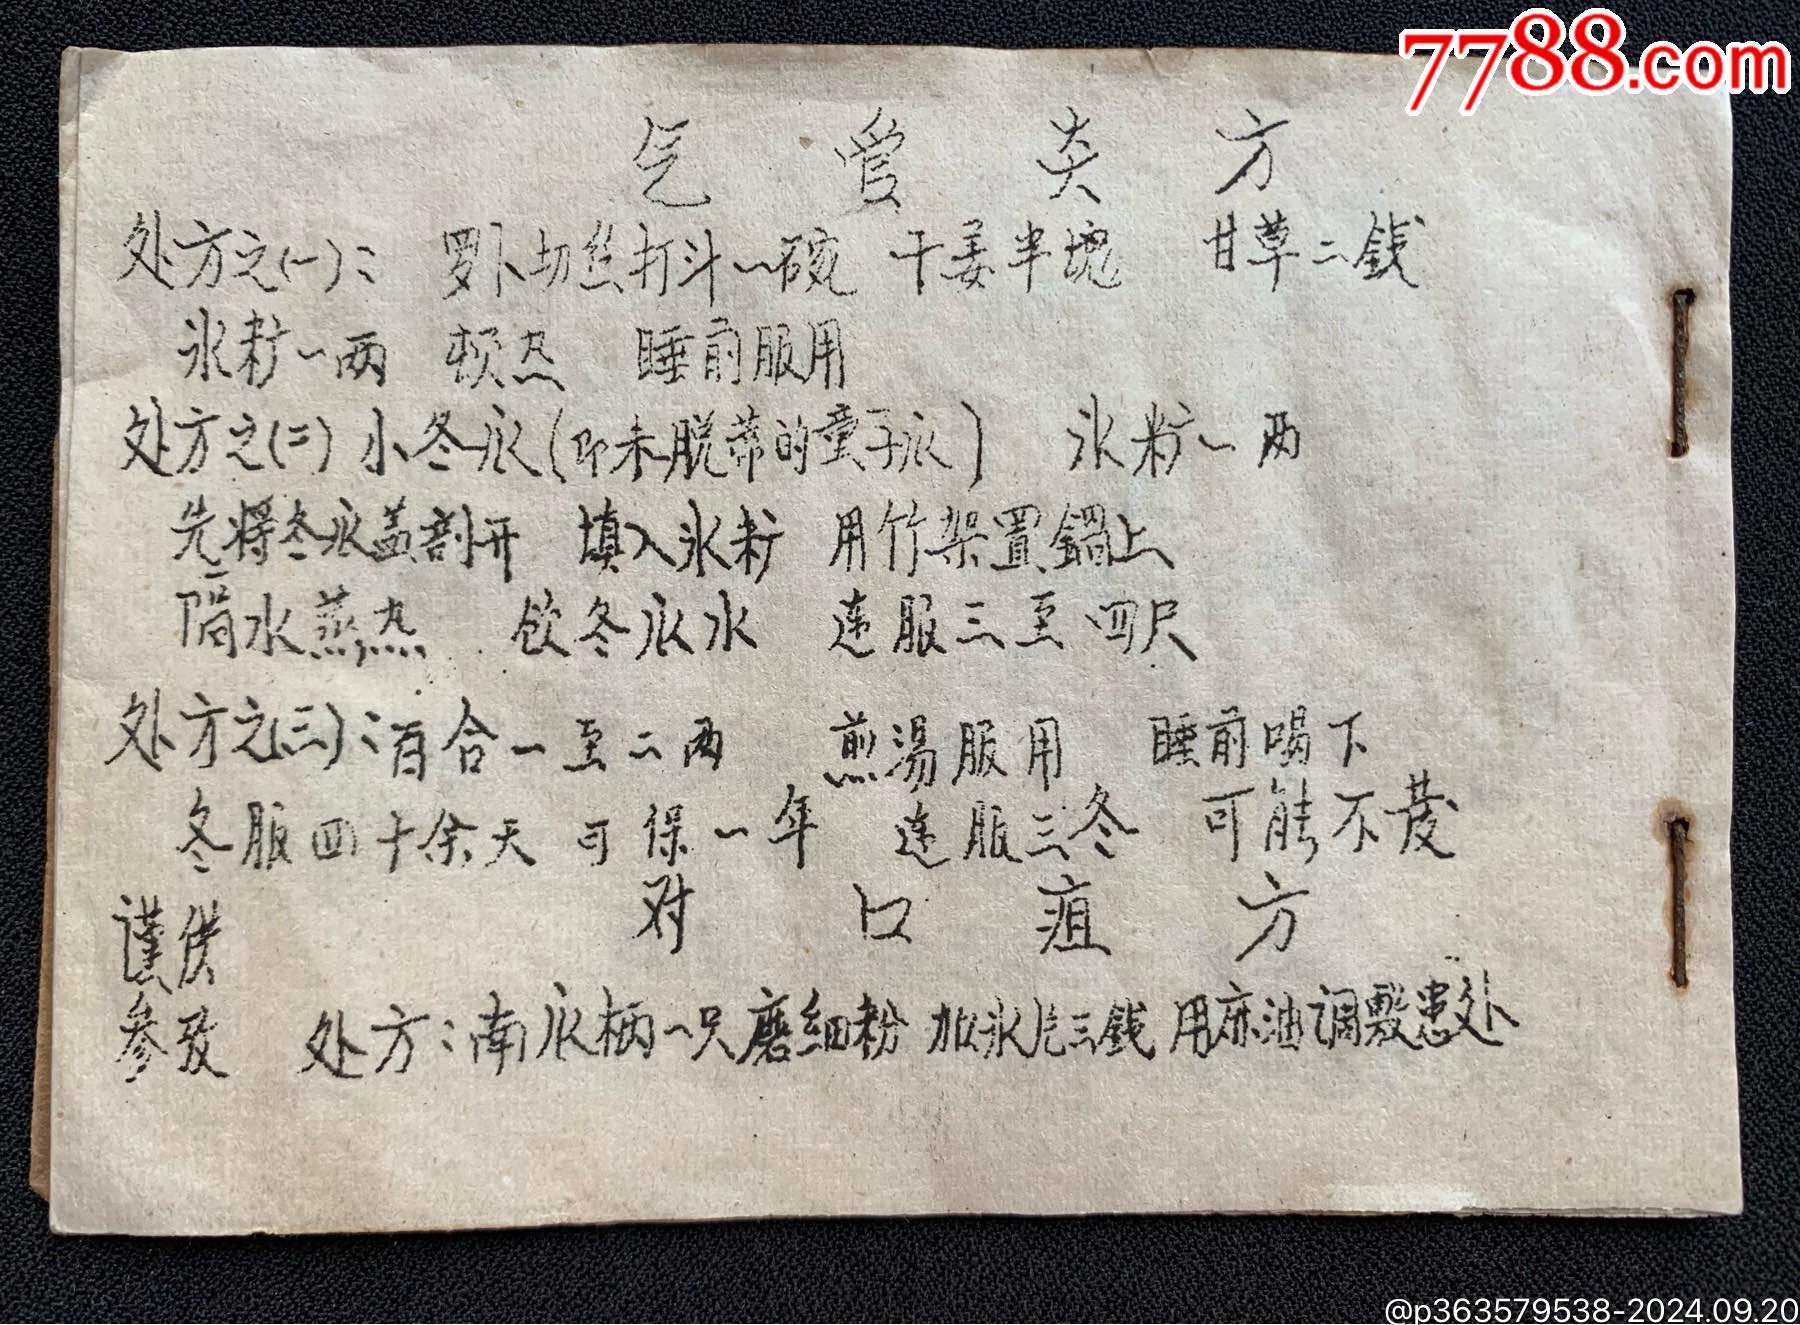 7788.com
气管炎方
处方之(一): 罗卜切丝打斗一碗 干姜半塊 甘草二錢
氷籵一两 顿热 睡前服用
处方之(二) 小冬瓜(即未脱蒂的童子瓜) 氷籵一两
先将冬瓜盖剖开 填入氷籵 用竹架置鍋上
隔水蒸热 飲冬瓜水 连服三至四尺
处方之(三): 百合一至二两 煎湯服用 睡前喝下
冬服四十余天 可保一年 连服三冬 可能不發
对口疽方
谨供
参攷 处方: 南瓜柄一只磨细粉 加氷片三錢 用麻油调敷患处
@p363579538-2024.09.20